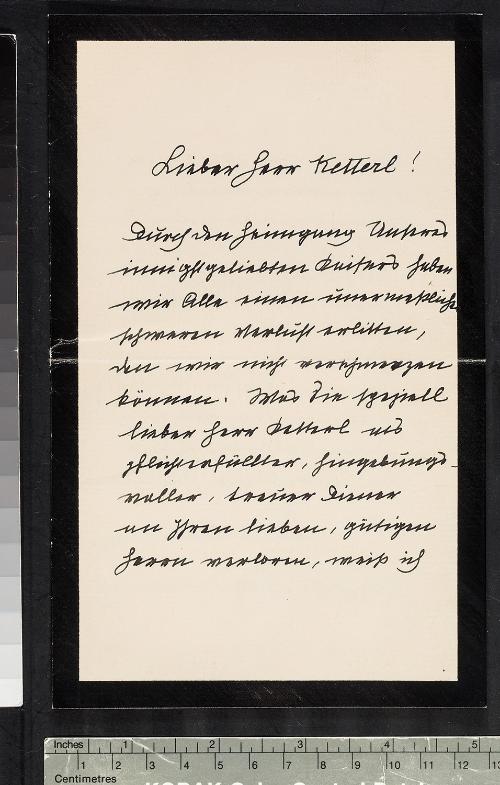 Lieber Herr Ketterl!
Durch den Heimgang Unseres
innigstgeliebten Kaisers haben
wir Alle einen unermeßlich
schweren Verlust erlitten,
den wir nicht verschmerzen
können. Was Sie speziell
lieber Herr Ketterl als
pflichterfüllter, hingebungs-
voller, treuer Diener
an Ihren lieben, gütigen
Herrn verloren, weiß ich
Inches 1 2 3 4 5
Centimetres 1 2 3 4 5 6 7 8 9 10 11 12 13